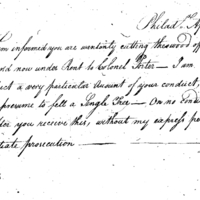 Philad.ª Ap
am informed you are wantonly cutting the wood of
and now under Rent to Colonel Porter — I am
ect a very particular Amount of your conduct,
presume to fell a Single Tree — On no cond
after you receive this, without my express per
diate prosecution